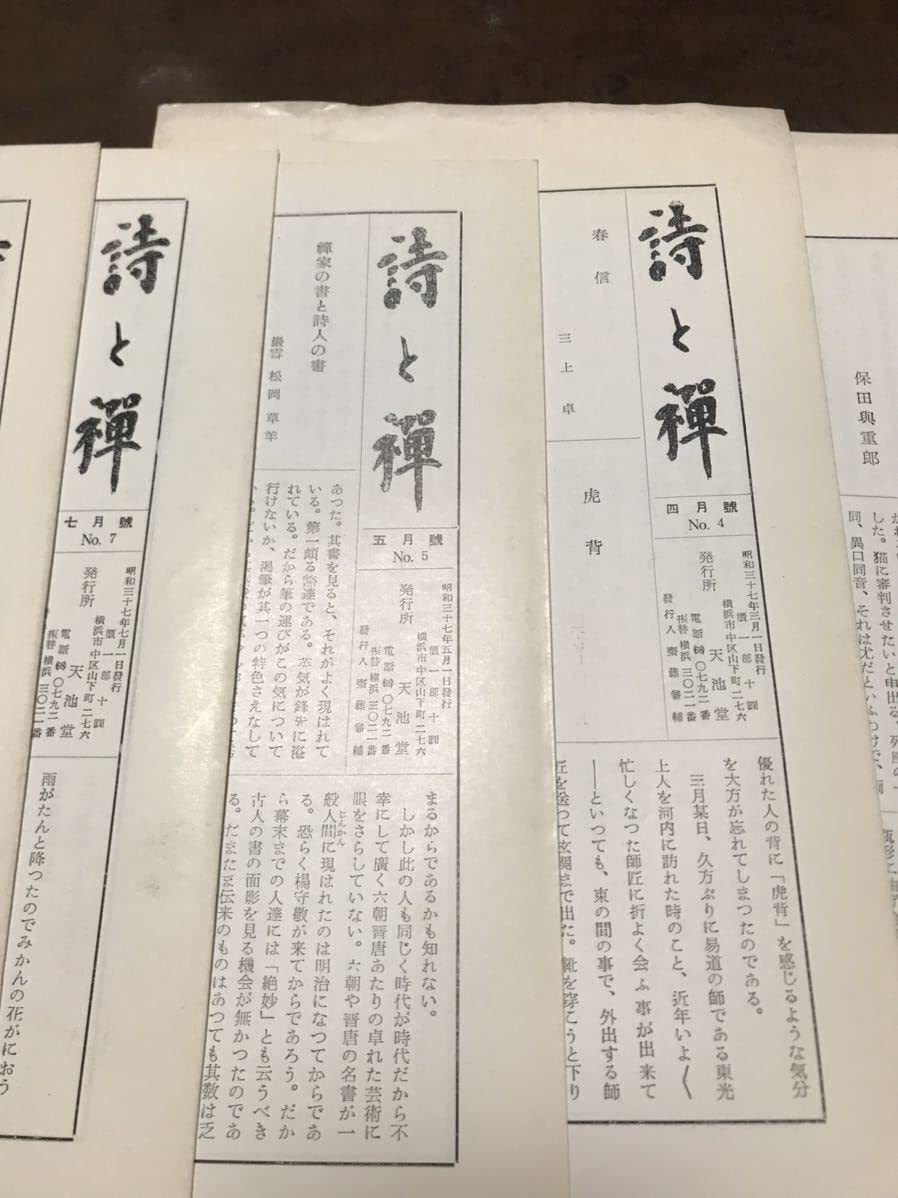 保田與重郎
した。猫に審判させたいと申出る。
同、異口同音、それは尤だといふわけで、
詩と禪
四月號
No. 4
昭和三十七年三月一日發行
價一部十圓
発行所
横浜市中区山下町二七六
天池堂
電話 ⑱ 〇七九二番
振替横浜 三〇二一番
春信
三上卓
虎背
優れた人の背に「虎背」を感じるような気分
を大方が忘れてしまつたのである。
三月某日、久方ぶりに易道の師である東光
上人を河内に訪れた時のこと、近年いよ〱
忙しくなつた師匠に折よく会ふ事が出来て
――といつても、束の間の事で、外出する師
匠を送つて玄関まで出た。靴を穿こうと下り
詩と禪
五月號
No. 5
昭和三十七年五月一日發行
價一部十圓
発行所
横浜市中区山下町二七六
天池堂
電話 ⑱ 〇七九二番
振替横浜 三〇二一番
禪家の書と詩人の書
巖雪 松岡草羊
あつた。其書を見ると、それがよく現はれて
いる。第一頗る豁達である。英気が鋒先に溢
れている。だから筆の運びがこの気について
行けないか、渇筆が其一つの特色さえなして
まるからであるかも知れない。
しかし此の人も同じく時代が時代だから不
幸にして廣く六朝晋唐あたりの卓れた芸術に
眼をさらしていない。六朝や晋唐の名書が一
般人間に現はれたのは明治になつてからであ
じんかん
る。恐らく楊守敬が来てからであろう。だか
ら幕末までの人達には「絶妙」とも云うべき
古人の書の面影を見る機会が無かつたのであ
る。だまたま伝来のものはあつても其数は乏
詩と禪
七月號
No. 7
昭和三十七年七月一日發行
價一部十圓
発行所
横浜市中区山下町二七六
天池堂
電話 ⑱ 〇七九二番
振替横浜 三〇二一番
雨がたんと降つたのでみかんの花がにおう